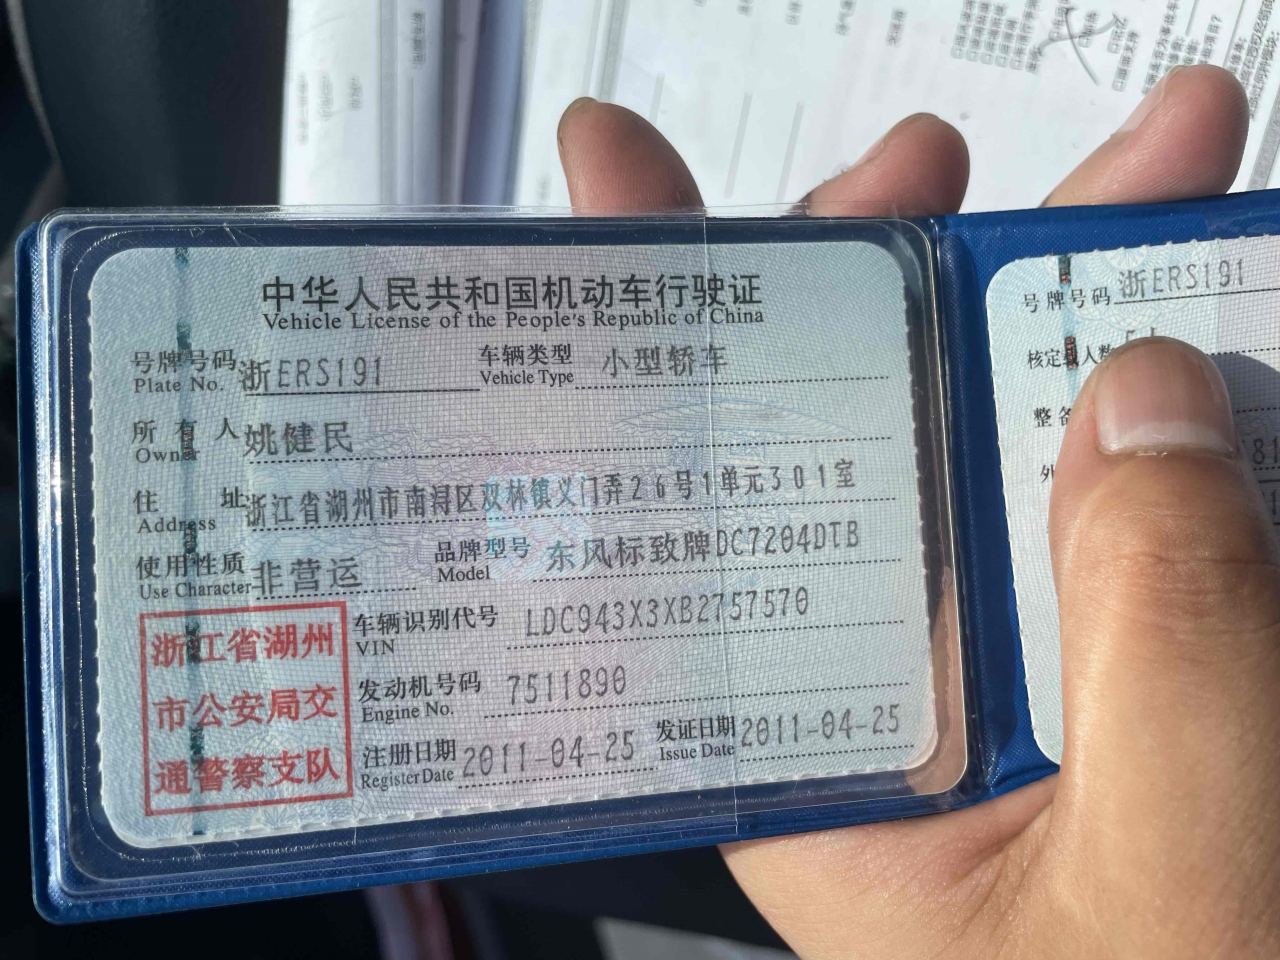 中华人民共和国机动车行驶证
Vehicle License of the People's Republic of China
号牌号码 浙ERS191 车辆类型 小型轿车
Plate No. Vehicle Type
所有人 姚健民
Owner
住址 浙江省湖州市南浔区双林镇义门弄26号1单元301室
Address
使用性质 非营运 品牌型号 东风标致牌DC7204DTB
Use Character Model
浙江省湖州
市公安局交
通警察支队
车辆识别代号 LDC943X3XB2757570
VIN
发动机号码 7511890
Engine No.
注册日期 2011-04-25 发证日期 2011-04-25
Register Date Issue Date
号牌号码 浙ERS191
核定载人数
整备
外